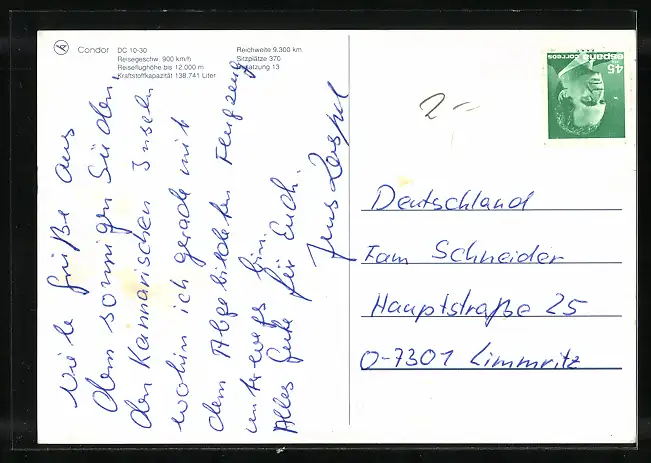 Condor
DC 10-30
Reisegeschw. 900 km/h
Reiseflughöhe bis 12.000 m
Kraftstoffkapazität 138.741 Liter
Reichweite 9.300 km
Sitzplätze 370
Besatzung 13
Viele Grüße aus
dem sonnigen Süden,
den Kannarischen Inseln
wohin ich gerade mit
dem Abgebildeten Flugzeug
unterwegs bin.
Alles Gute für Euch.
Jens
2,-
45
españa correos
Deutschland
Fam Schneider
Hauptstraße 25
O-7301 Limmritz